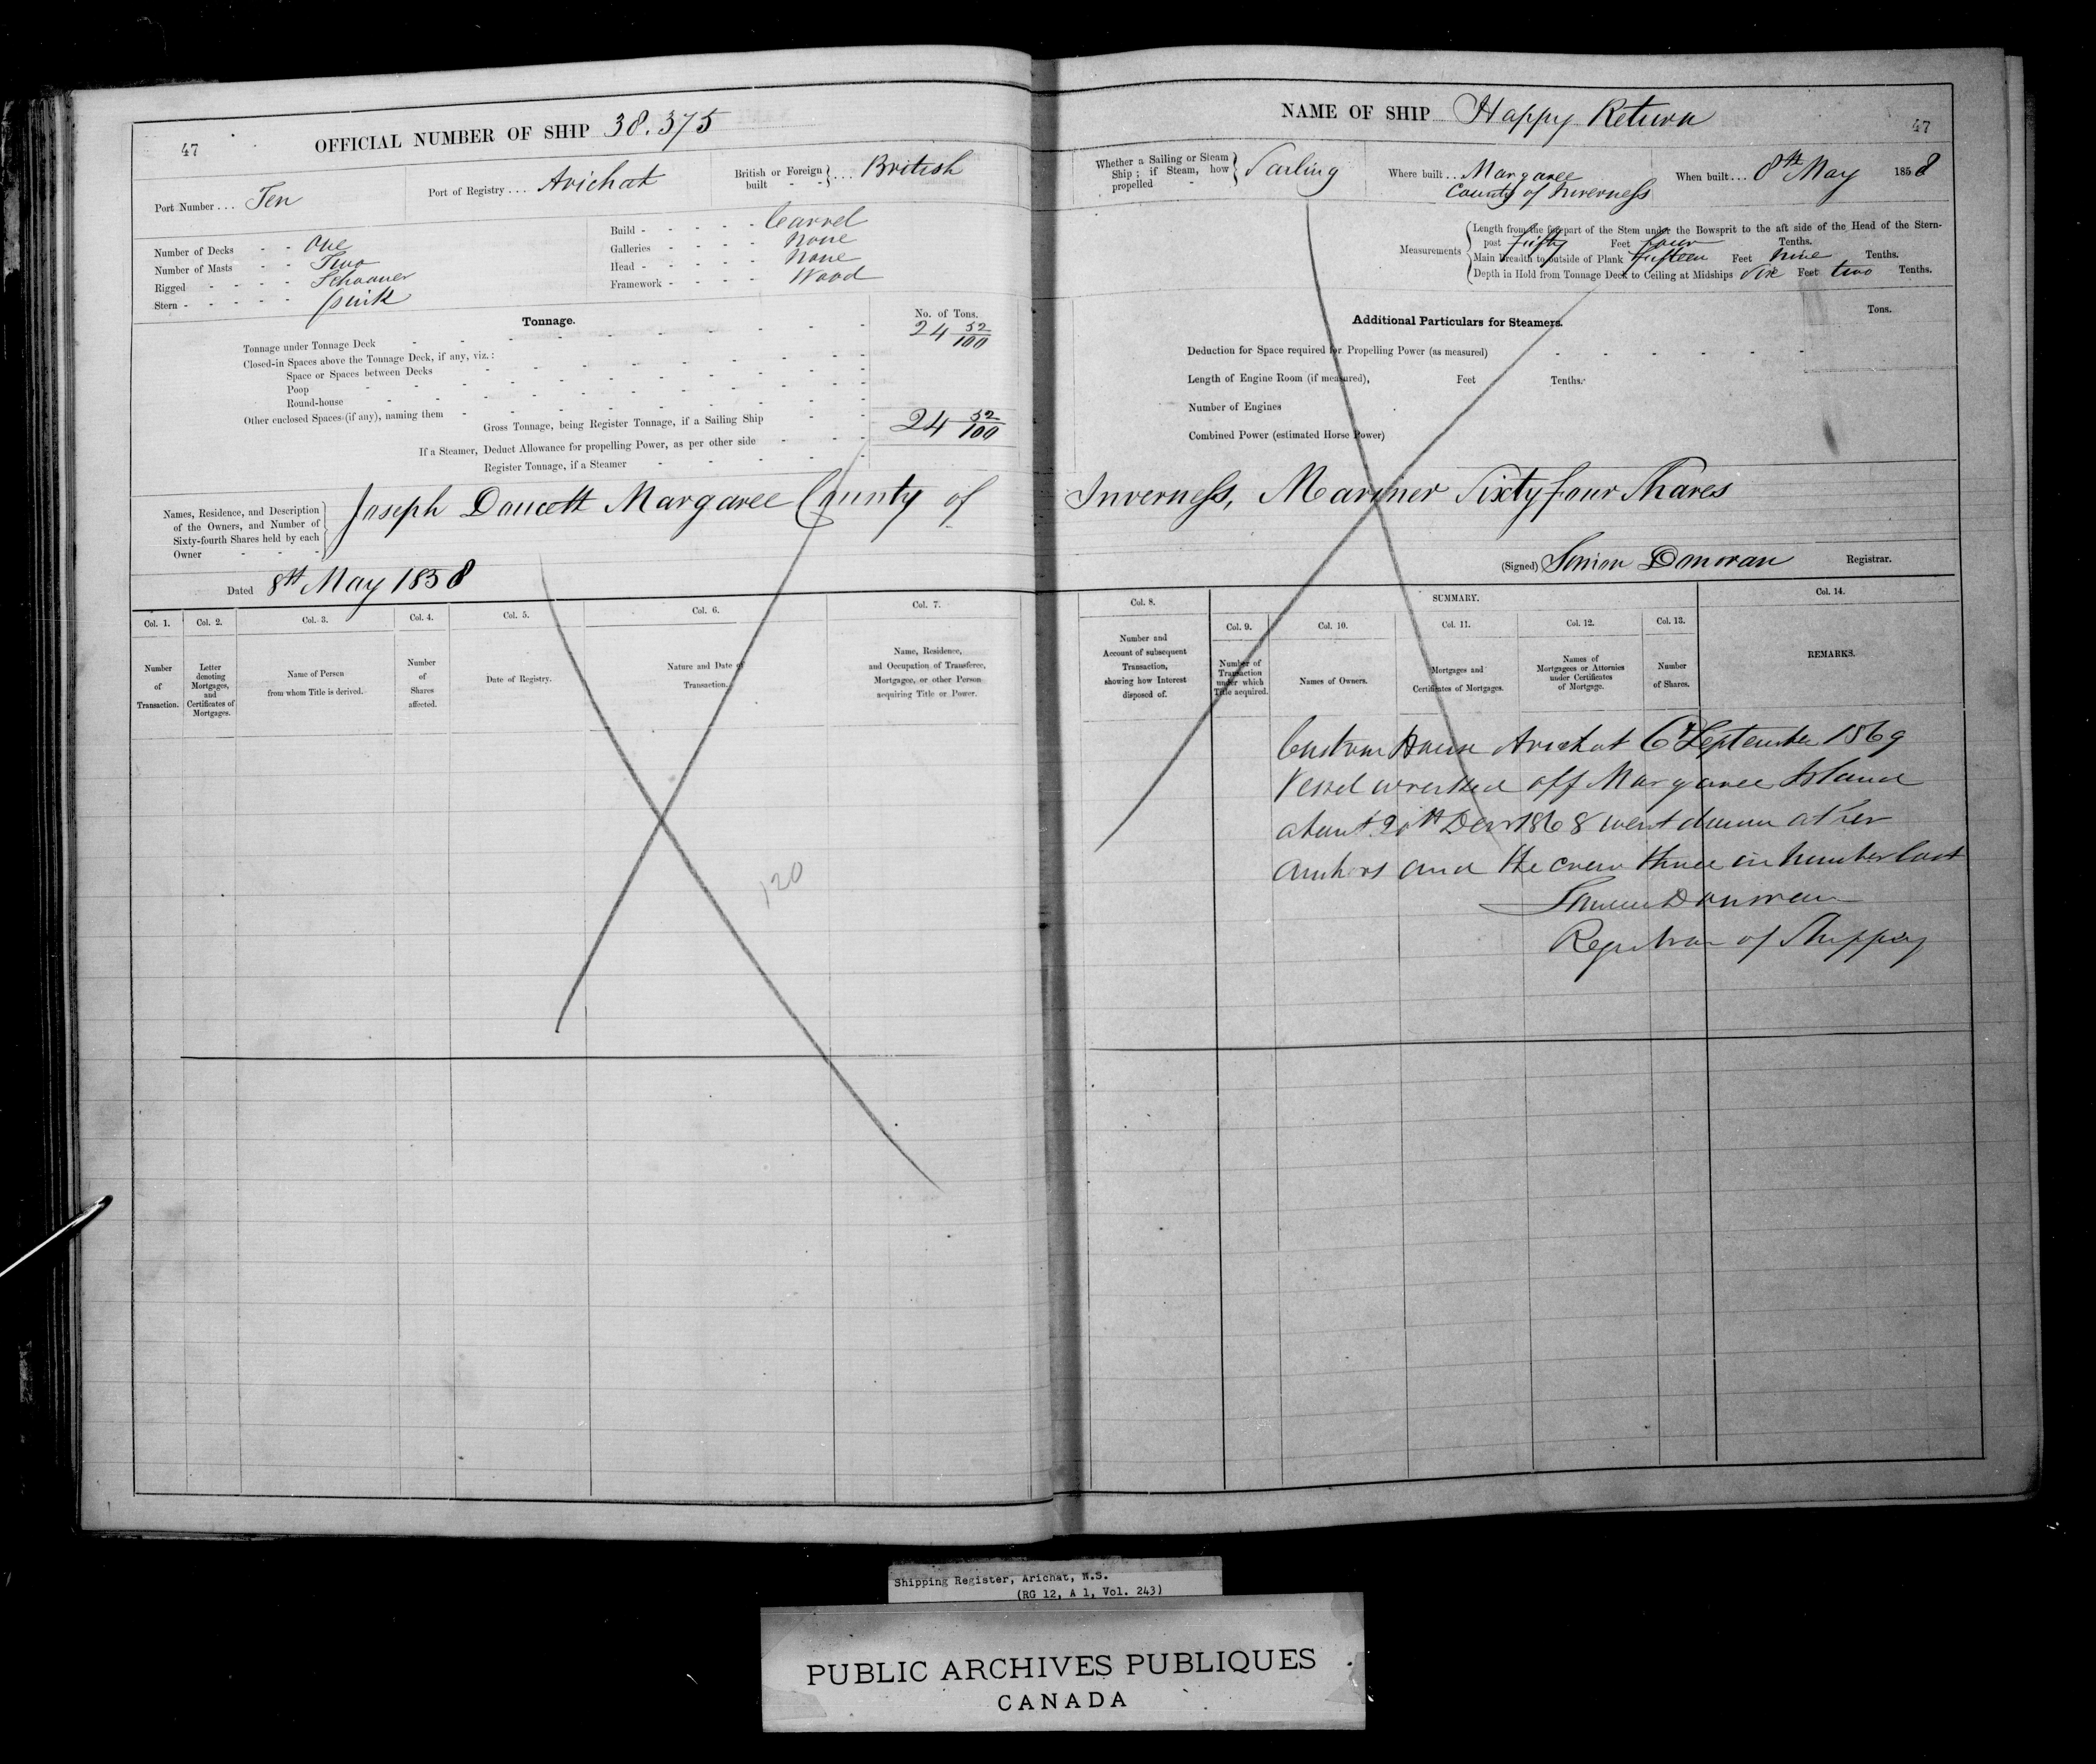 47
OFFICIAL NUMBER OF SHIP 38.375
Port Number . . . Ten
Port of Registry . . . Arichat
British or Foreign built - - } . . . British
Number of Decks - - One
Number of Masts - - Two
Rigged - - - - Schooner
Stern - - - - - pink
Build - - - - - Carvel
Galleries - - - - None
Head - - - - - None
Framework - - - - Wood
Tonnage.
No. of Tons.
Tonnage under Tonnage Deck 24 52/100
Closed-in Spaces above the Tonnage Deck, if any, viz. :
Space or Spaces between Decks
Poop
Round-house
Other enclosed Spaces (if any), naming them
Gross Tonnage, being Register Tonnage, if a Sailing Ship 24 52/100
If a Steamer, Deduct Allowance for propelling Power, as per other side
Register Tonnage, if a Steamer
Names, Residence, and Description
of the Owners, and Number of
Sixty-fourth Shares held by each
Owner - - -
Joseph Doucett Margaree County of
Dated 8th May 1858
Col. 1. Col. 2. Col. 3. Col. 4. Col. 5. Col. 6. Col. 7.
Number of Transaction.
Letter denoting Mortgages, and Certificates of Mortgages.
Name of Person from whom Title is derived.
Number of Shares affected.
Date of Registry.
Nature and Date of Transaction.
Name, Residence, and Occupation of Transferee, Mortgagee, or other Person acquiring Title or Power.
120
NAME OF SHIP Happy Return
47
Whether a Sailing or Steam Ship ; if Steam, how propelled - } Sailing
Where built . . . Margaree
County of Inverness
When built . . . 8th May 1858
Measurements
Length from the forepart of the Stem under the Bowsprit to the aft side of the Head of the Stern-
post Fifty Feet four Tenths.
Main Breadth to outside of Plank fifteen Feet nine Tenths.
Depth in Hold from Tonnage Deck to Ceiling at Midships Six Feet two Tenths.
Additional Particulars for Steamers.
Tons.
Deduction for Space required for Propelling Power (as measured)
Length of Engine Room (if measured), Feet Tenths.
Number of Engines
Combined Power (estimated Horse Power)
Inverness, Mariner Sixty four Shares
(Signed) Simon Donovan Registrar.
Col. 8.
SUMMARY.
Col. 14.
Col. 9. Col. 10. Col. 11. Col. 12. Col. 13.
Number and Account of subsequent Transaction, showing how Interest disposed of.
Number of Transaction under which Title acquired.
Names of Owners.
Mortgages and Certificates of Mortgages.
Names of Mortgagees or Attornies under Certificates of Mortgage.
Number of Shares.
REMARKS.
Custom House Arichat 6th September 1869
Vessel wrecked off Margaree Island
about 20th Decr 1868 went down at her
anchors and the crew three in number lost
Simon Donovan
Registrar of Shipping
Shipping Register, Arichat, N.S.
(RG 12, A 1, Vol. 243)
PUBLIC ARCHIVES PUBLIQUES
CANADA